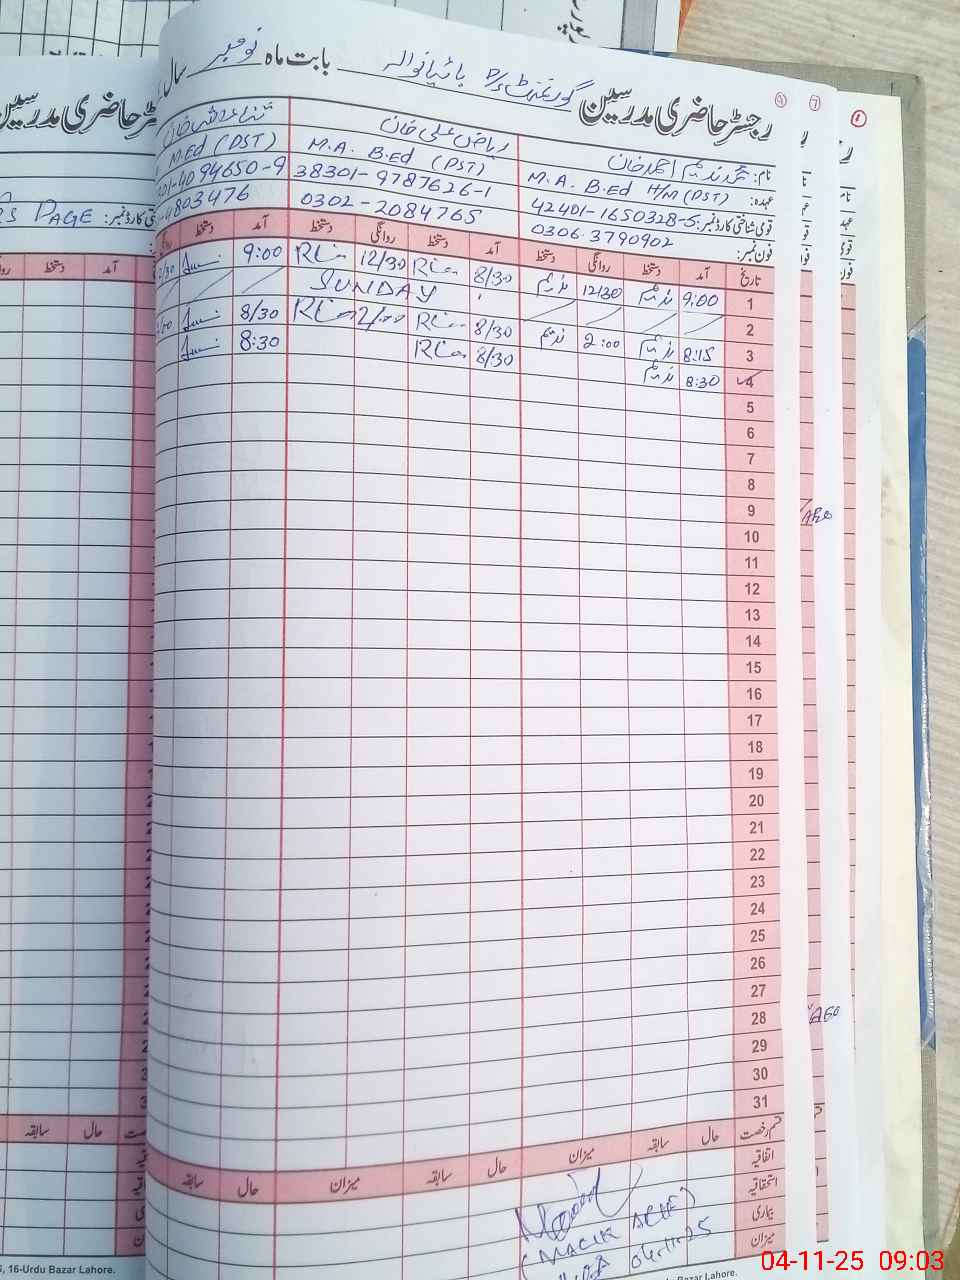 رجسٹر حاضری مدرسین گورنمنٹ P/S بابت ماہ نومبر سال
نام: محمد ندیم احمد خان
ریاض علی خان
عہدہ: M.A. B.Ed H/M (PST)
M.A. B.Ed (PST)
M.Ed (PST)
قومی شناختی کارڈ نمبر: 42401-1650328-5
38301-9787626-1
01-4094650-9
فون نمبر: 0306-3790902
0302-2084765
4803476
PAGE
تاریخ آمد دستخط روانگی دستخط آمد دستخط روانگی دستخط آمد دستخط
1 9:00 ندیم 12/30 ندیم 8/30 12/30 9:00
2 SUNDAY
3 8:15 ندیم 2:00 ندیم 8/30 2/00 8/30
4 8:30 ندیم 8/30 8:30
5
6
7
8
9
10
11
12
13
14
15
16
17
18
19
20
21
22
23
24
25
26
27
28
29
30
31
قسم رخصت حال سابقہ میزان حال سابقہ میزان حال سابقہ
اتفاقیہ
استحقاقیہ
بیماری
میزان
(MALIK ARIF)
04-11-25
16-Urdu Bazar Lahore.
04-11-25 09:03